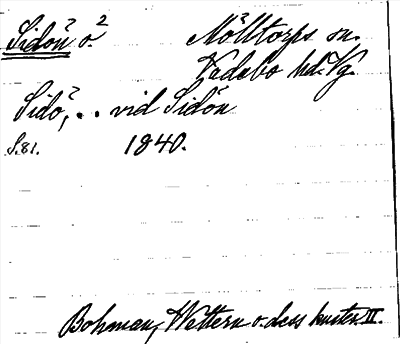 Sidön ö.² Mölltorps sn.
Vadsbo hd. Vg.
Sidö, .. vid Sidön
S. 81. 1840.
Bohman, Wettern o. dess kuster. II.